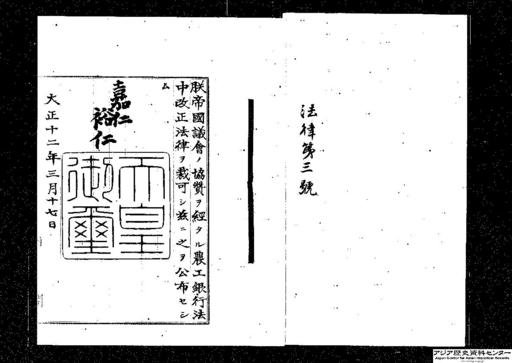 法律第三號
朕帝國議會ノ協賛ヲ經タル農工銀行法
中改正法律ヲ裁可シ茲ニ之ヲ公布セシ
ム
嘉仁
裕仁
天皇
御璽
大正十二年三月十七日
アジア歴史資料センター
Japan Center for Asian Historical Records